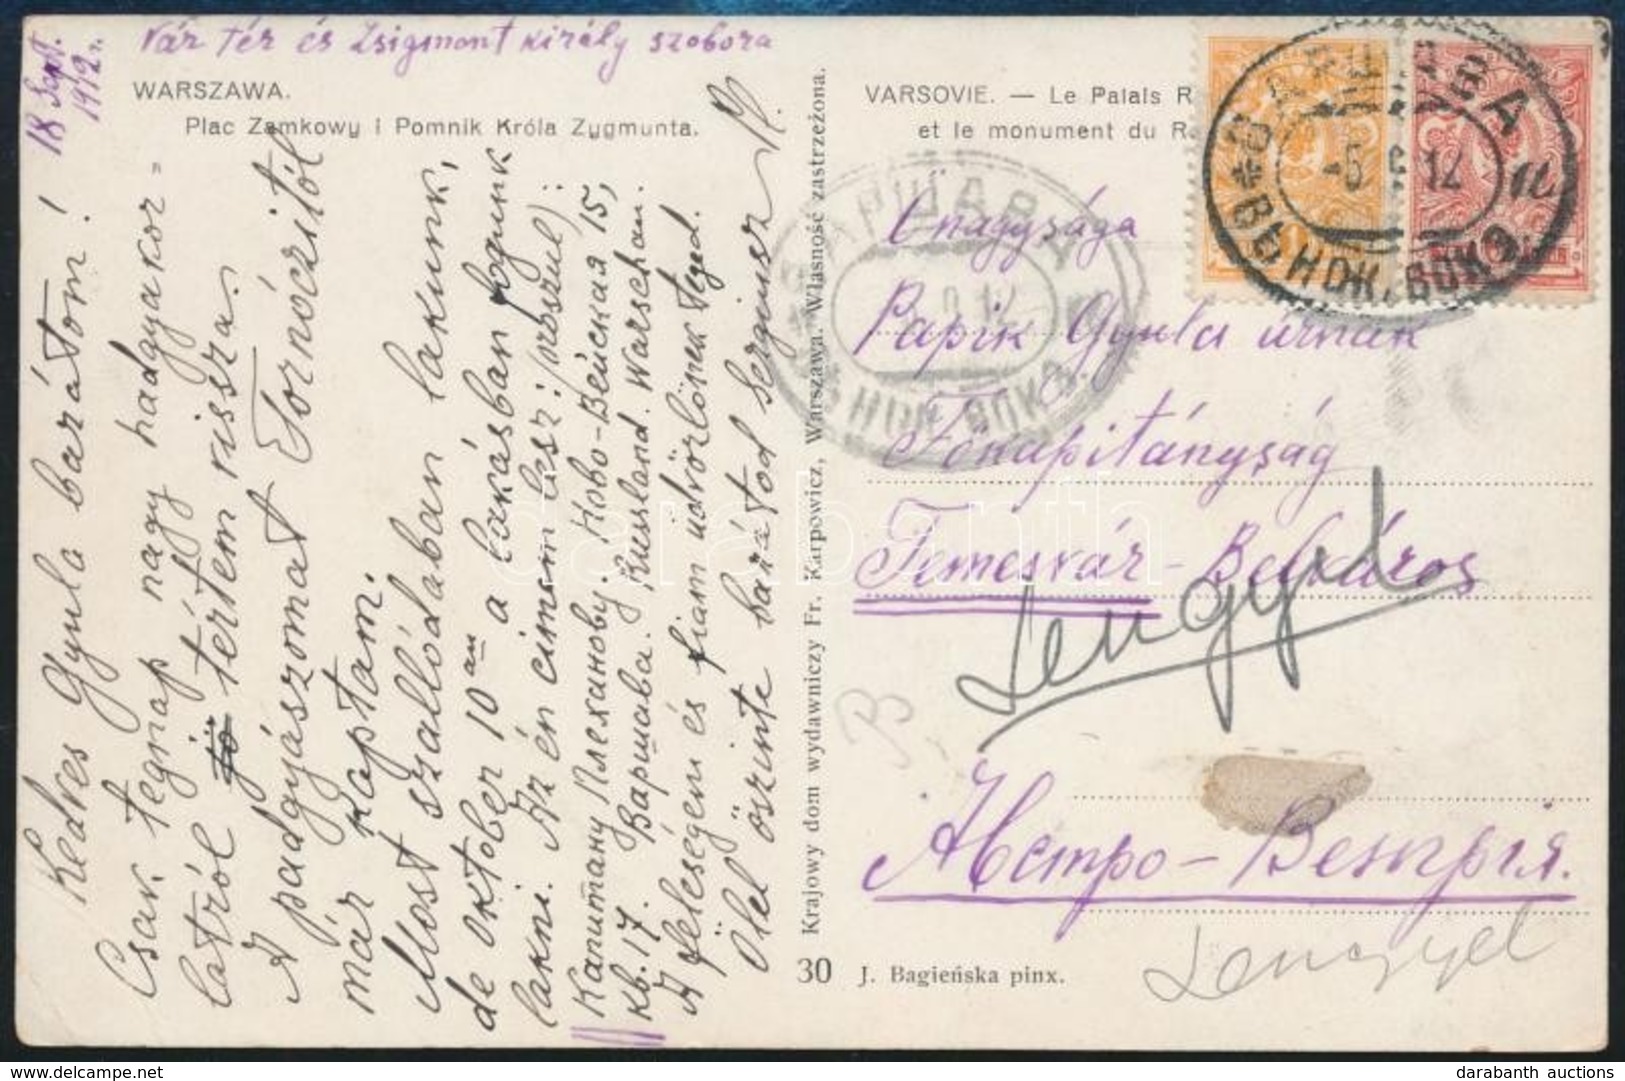 18 Sept.
1912 n.
Vár tér és Zsigmont király szobora
WARSZAWA.
Plac Zamkowy i Pomnik Króla Zygmunta.
VARSOVIE. — Le Palais R
et le monument du R
Kedves Gyula barátom!
Csak tegnap nagy hadgyakor=
latról tértem vissza.
A padgyászomat Tornóczitól
már kaptam.
Most szallódaban lakunk,
de október 10 an a lakásban fogunk
lakni. Az én cimem lesz: (roszul):
Капитану Плехановy. Ново-Вейская 15,
кв. 17. Варшава. Russland. Warschau.
A feleségem és fiam üdvözlönek téged.
Ölel öszinte barátod Sergiusz Pl.
Krajowy dom wydawniczy Fr. Karpowicz, Warszawa. Własność zastrzeżona.
30 J. Bagieńska pinx.
Ő nagysága
Papik Gyula úrnak
Főkapitányság
Temesvár - Belváros
Lengyel
Австро-Венгрія.
Lengyel
ВАРШАВА
-6 12
ВѢНСК. ВОКЗ.
ВАРШАВА
ВѢНСК. ВОКЗ.
darabanth
darabanth auctions